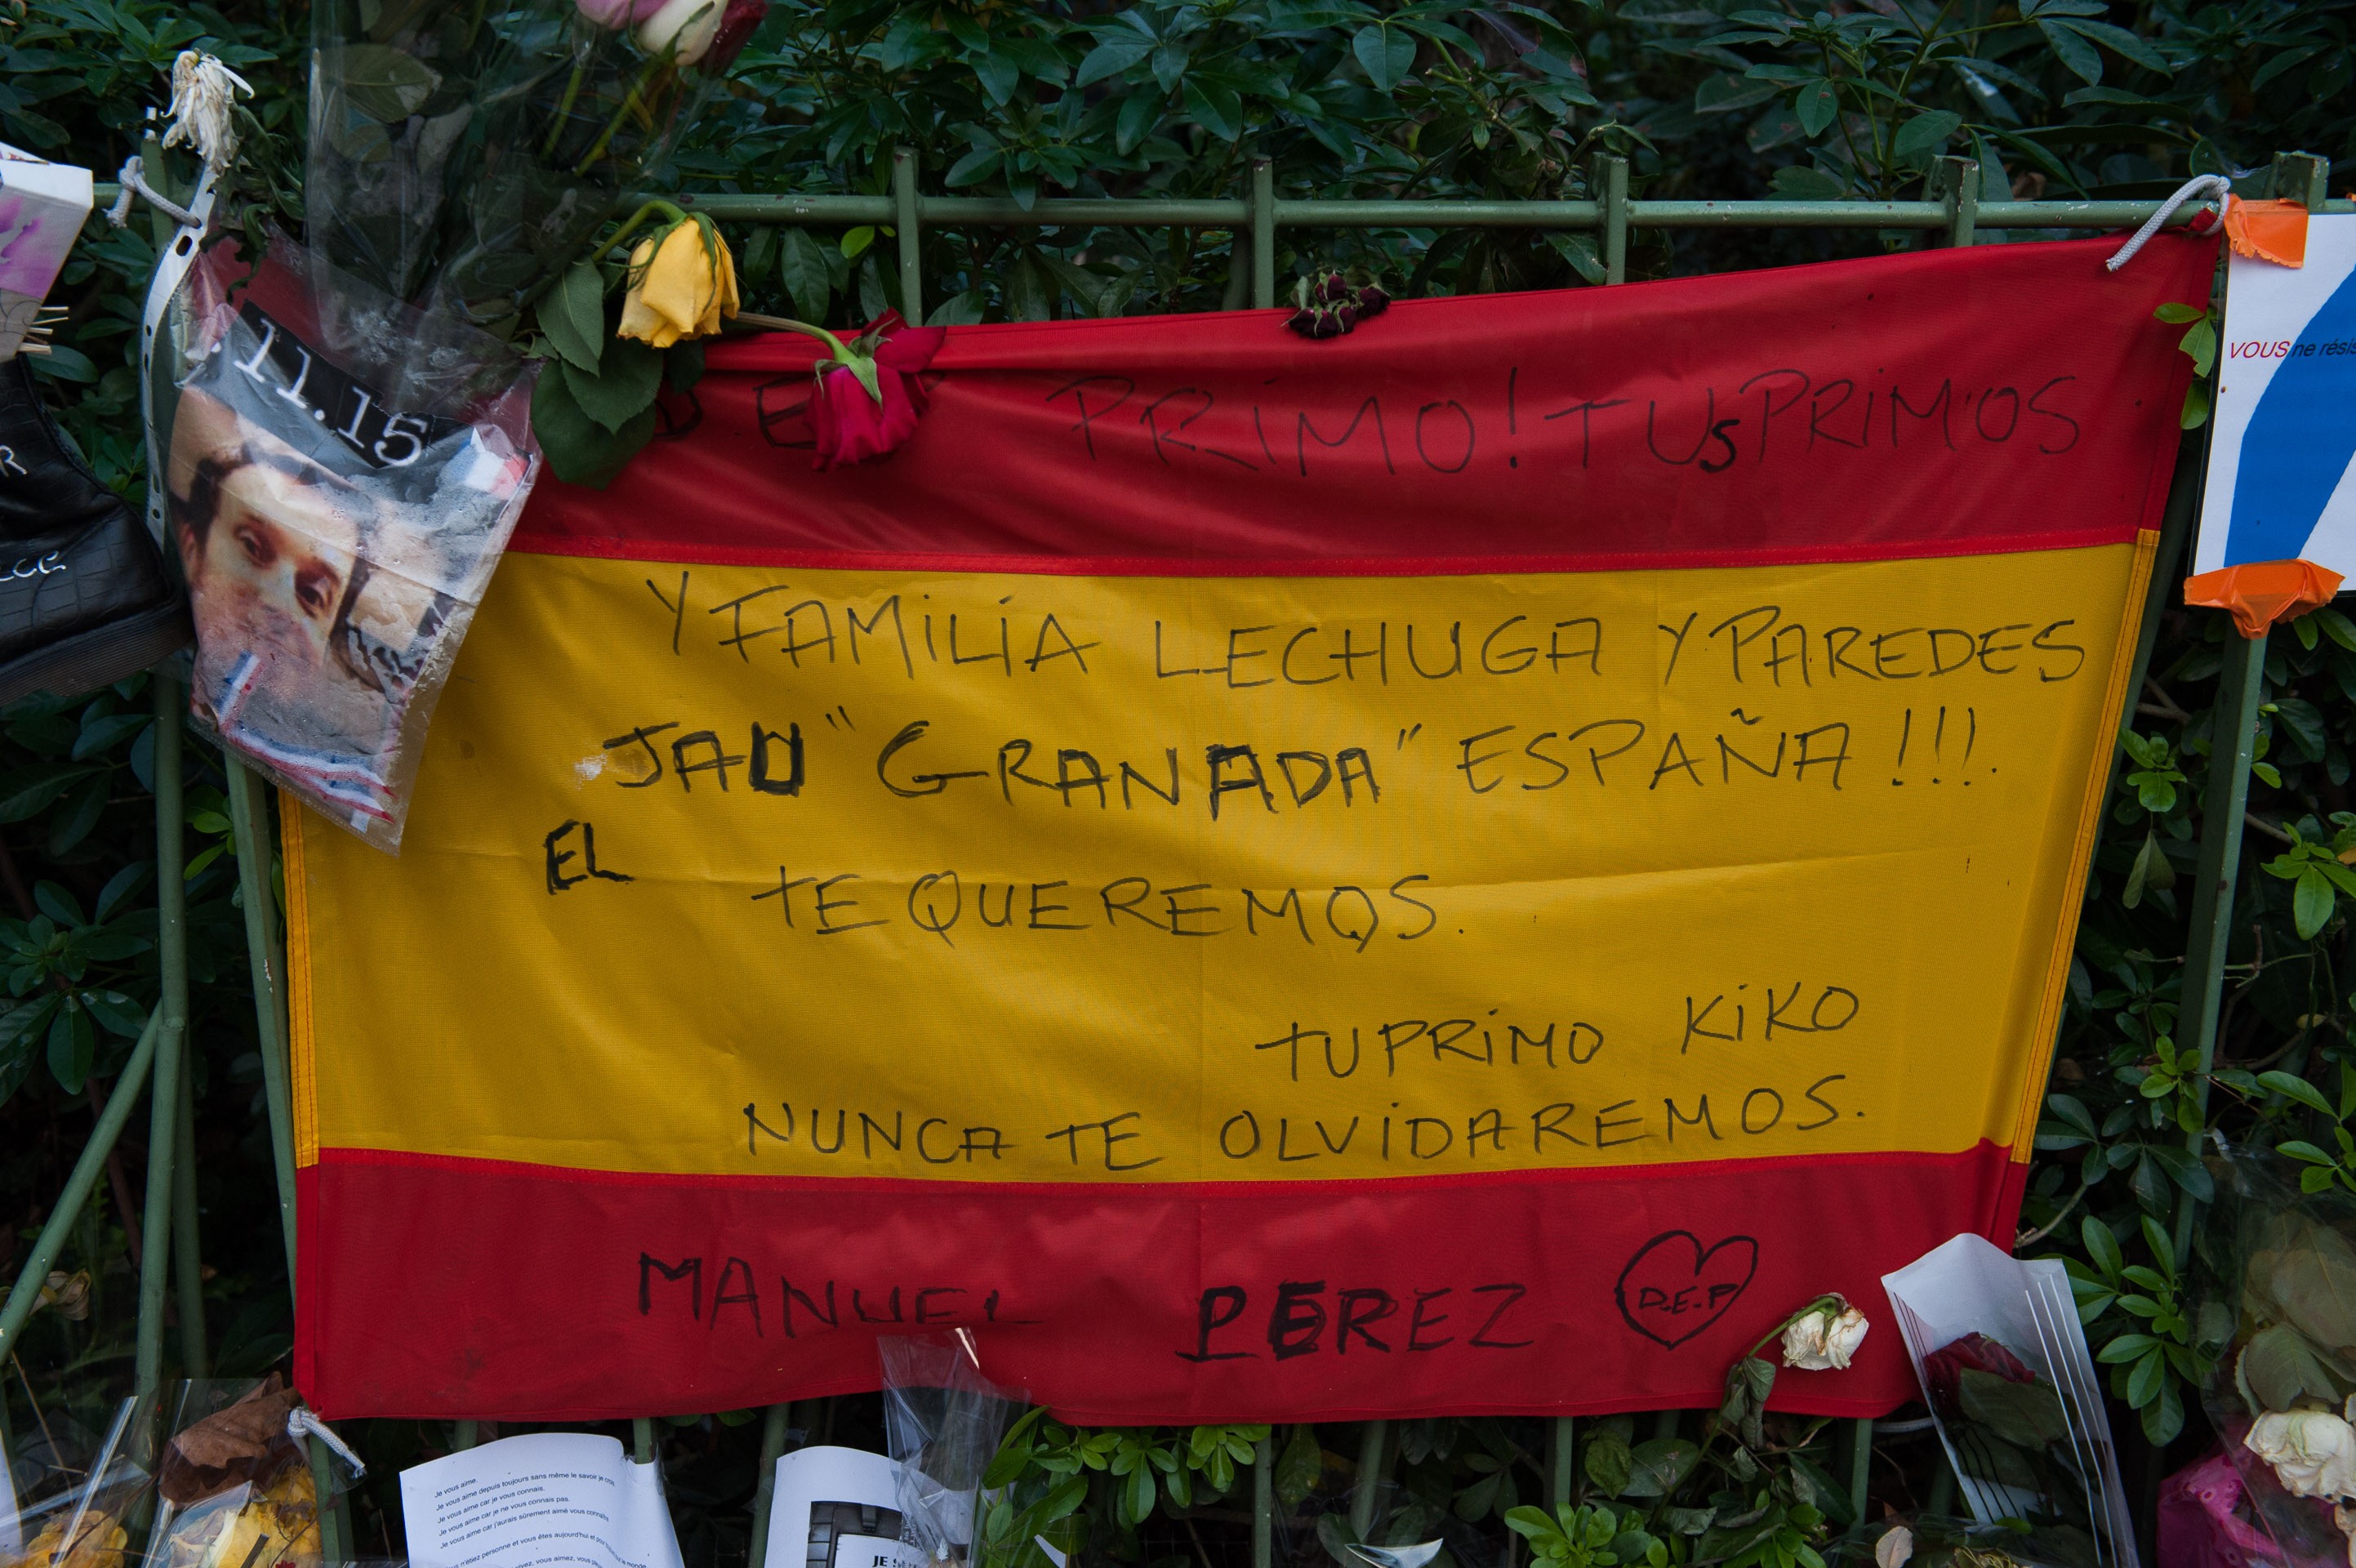 D E P PRIMO! TUS PRIMOS
Y FAMILIA LECHUGA Y PAREDES
JAU "GRANADA" ESPAÑA !!!.
EL
TE QUEREMOS.
TU PRIMO KIKO
NUNCA TE OLVIDAREMOS.
MANUEL PEREZ
D.E.P
11.15
VOUS ne résis
R
Je vous aime.
Je vous aime depuis toujours sans même le savoir je crois
Je vous aime car je vous connais.
Je vous aime car je ne vous connais pas.
Je vous aime car j'aurais sûrement aimé vous connaître
n'étiez personne et vous êtes aujourd'hui et pour le monde
vivez, vous aimez, vous
JE